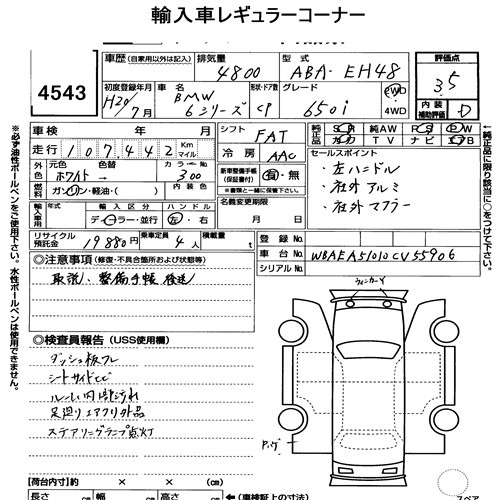 輸入車レギュラーコーナー
4543
車歴 (自家用以外は記入) 排気量 4800 型式 ABA- EH48
評価点 3.5
初度登録年月 H20/7月 車名 BMW 6シリーズ 形状・ドア数 CP グレード 650i 2WD 4WD
内装補助評価 D
車検 年 月 シフト FAT
純正品 SR 純AW PS PW
カワ TV ナビ AB
走行 107,442 Km マイル 冷房 AAC
セールスポイント
外装 元色 ホワイト→ 色 カラーNo. 300
・左ハンドル
燃料 ガソリン・軽油・( ) 内装色
新車整備手帳(保証書付) 有・無
※書類と一緒に保管下さい。
・社外アルミ
輸入車用 年式 輸入区分 ハンドル
ディーラー・並行 左・右
名義変更期限 月 日
・社外マフラー
リサイクル預託金 19880円 乗車定員 4人 積載量 t
登録No.
車台No. WBAEA51010CV55906
シリアルNo.
◎注意事項 (修復・不具合箇所および状態等)
取説、整備手帳後送
ウィンカーY
◎検査員報告 (USS使用欄)
ダッシュ板フレ
シートサイドヒビ
ルーム内部汚れ
足廻りエアクリ外品
ステアリングランプ点灯
【荷台内寸】約 × × (cm)
長さ 幅 高さ (車検証上の寸法)
スペア
※必ず油性ボールペンをご使用下さい。水性ボールペンは使用できません。
◆純正品に限り該当に○をつけて下さい